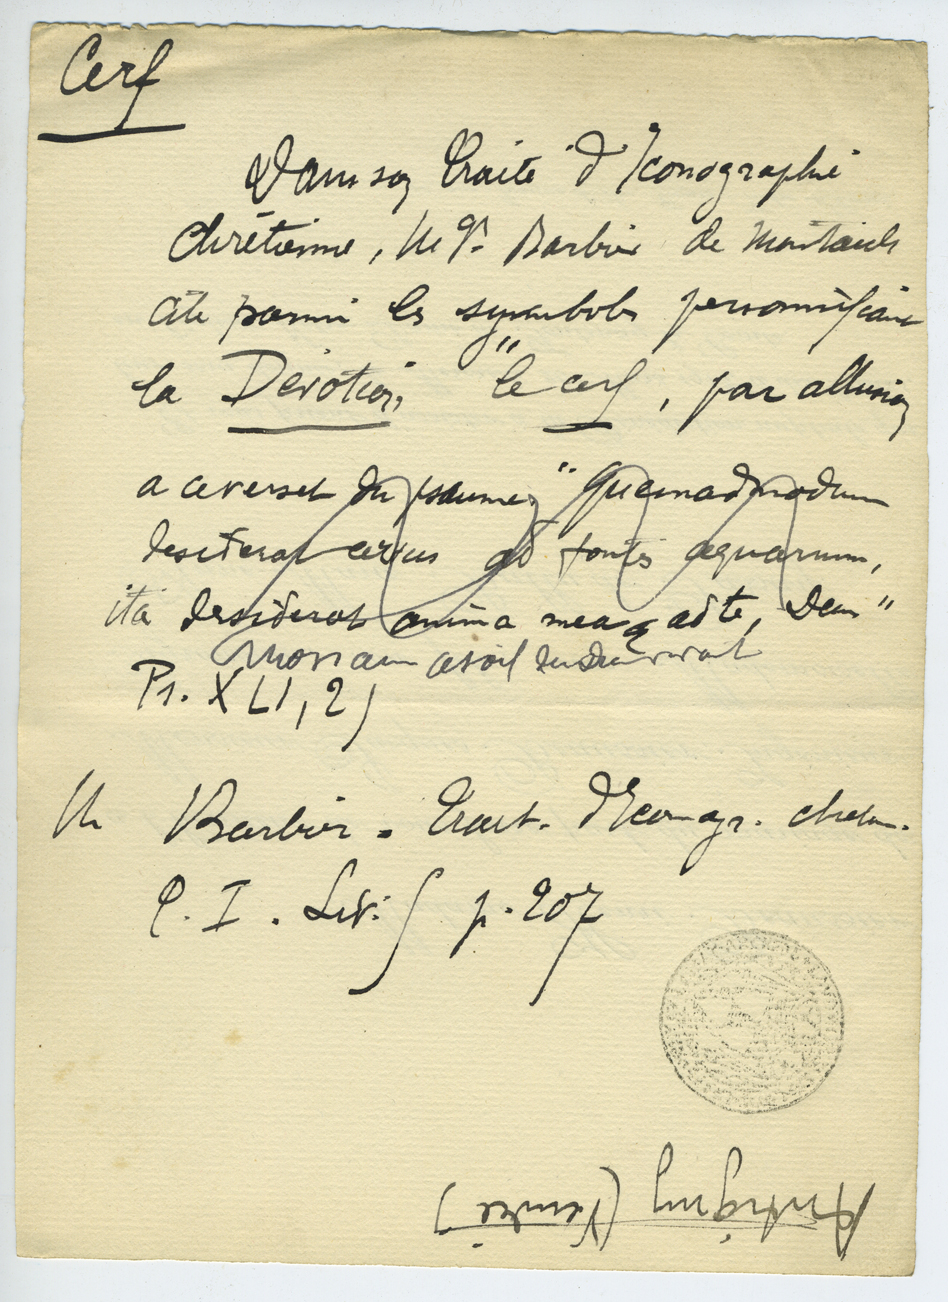 Cerf
Dans son Traité d'Iconographie
chrétienne, Mgr Barbier de Montault
cite parmi les symboles personnifiant
la Dévotion "le cerf, par allusion
a ce verset du psaume "Quemadmodum
desiderat cervus ad fontes aquarum,
ita desiderat anima mea ad te, Deus"
Ps. XLI, 2)
Barbier. Trait. d'Iconogr. chretien.
T. I. Liv. p. 207
Antigny (Vendée)